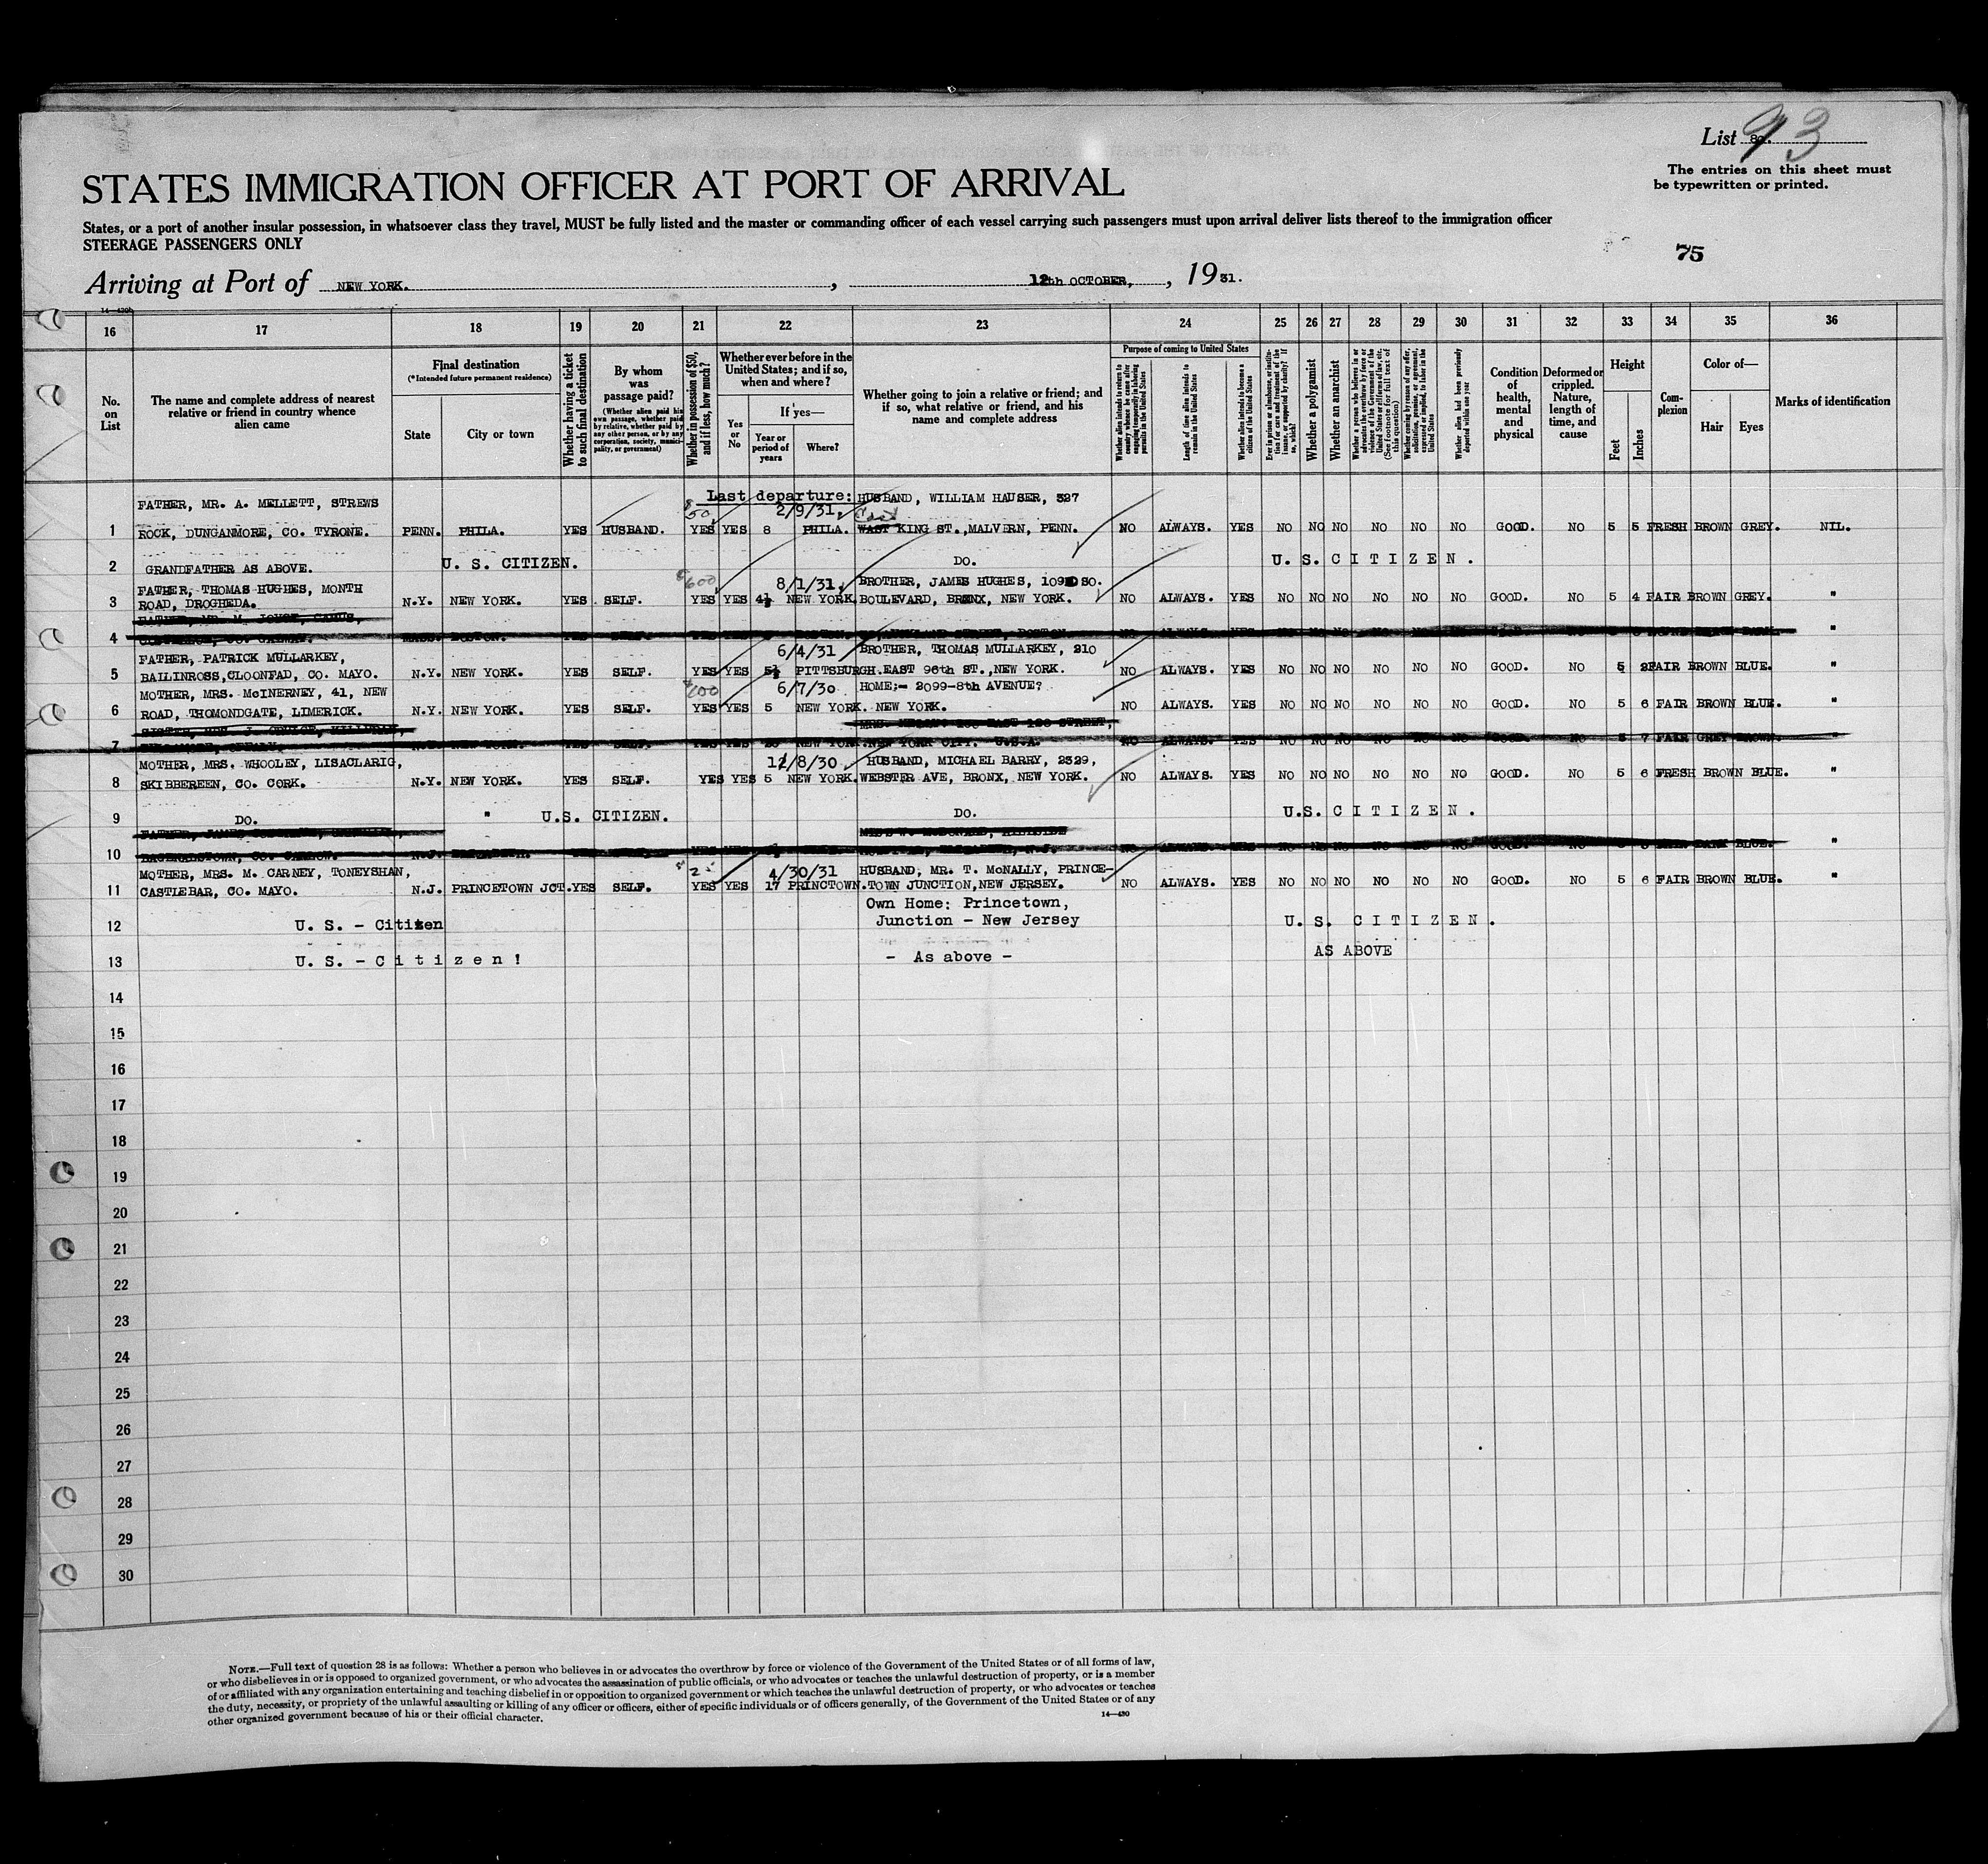 List 93
The entries on this sheet must
be typewritten or printed.
STATES IMMIGRATION OFFICER AT PORT OF ARRIVAL
States, or a port of another insular possession, in whatsoever class they travel, MUST be fully listed and the master or commanding officer of each vessel carrying such passengers must upon arrival deliver lists thereof to the immigration officer
STEERAGE PASSENGERS ONLY
75
Arriving at Port of NEW YORK. , 12th OCTOBER, , 19 31.
16 17 18 19 20 21 22 23 24 25 26 27 28 29 30 31 32 33 34 35 36
No. on List
The name and complete address of nearest relative or friend in country whence alien came
Final destination
(*Intended future permanent residence)
State
City or town
Whether having a ticket to such final destination
By whom was passage paid?
(Whether alien paid his own passage, whether paid by relative, whether paid by any other person, or by any corporation, society, municipality, or government)
Whether in possession of $50, and if less, how much?
Whether ever before in the United States; and if so, when and where?
Yes or No
If yes—
Year or period of years
Where?
Whether going to join a relative or friend; and if so, what relative or friend, and his name and complete address
Purpose of coming to United States
Whether alien intends to return to country whence he came after engaging temporarily in laboring pursuits in the United States
Length of time alien intends to remain in the United States
Whether alien intends to become a citizen of the United States
Ever in prison or almshouse, or institution for care and treatment of the insane, or supported by charity? If so, which?
Whether a polygamist
Whether an anarchist
Whether a person who believes in or advocates the overthrow by force or violence of the Government of the United States or all forms of law, etc. (See footnote for full text of this question)
Whether coming by reason of any offer, solicitation, promise, or agreement, expressed or implied, to labor in the United States
Whether alien had been previously deported within one year
Condition of health, mental and physical
Deformed or crippled. Nature, length of time, and cause
Height
Feet
Inches
Complexion
Color of—
Hair
Eyes
Marks of identification
FATHER, MR. A. MELLETT, STREWS $50 Last departure: 2/9/31, HUSBAND, WILLIAM HAUSER, 327
1 ROCK, DUNGANMORE, CO. TYRONE. PENN. PHILA. YES HUSBAND. YES YES 8 PHILA. East KING ST., MALVERN, PENN. NO ALWAYS. YES NO NO NO NO NO NO GOOD. NO 5 5 FRESH BROWN GREY. NIL.
2 GRANDFATHER AS ABOVE. U. S. CITIZEN. DO. U. S. CITIZEN.
FATHER, THOMAS HUGHES, MONTH $600 8/1/31, BROTHER, JAMES HUGHES, 1092 SO.
3 ROAD, DROGHEDA. N.Y. NEW YORK. YES SELF. YES YES 4½ NEW YORK. BOULEVARD, BRONX, NEW YORK. NO ALWAYS. YES NO NO NO NO NO NO GOOD. NO 5 4 FAIR BROWN GREY. "
4 "
FATHER, PATRICK MULLARKEY, 6/4/31 BROTHER, THOMAS MULLARKEY, 210
5 BALLINROSS, CLOONFAD, CO. MAYO. N.Y. NEW YORK. YES SELF. YES YES 5½ PITTSBURGH. EAST 96th ST., NEW YORK. NO ALWAYS. YES NO NO NO NO NO NO GOOD. NO 5 2 FAIR BROWN BLUE. "
MOTHER, MRS. McINERNEY, 41, NEW $600 6/7/30 HOME;- 2099-8th AVENUE?
6 ROAD, THOMONDGATE, LIMERICK. N.Y. NEW YORK. YES SELF. YES YES 5 NEW YORK. NEW YORK. NO ALWAYS. YES NO NO NO NO NO NO GOOD. NO 5 6 FAIR BROWN BLUE. "
7 N.Y. NEW YORK. YES SELF. YES YES NEW YORK. NEW YORK CITY. U.S.A. NO ALWAYS. YES NO NO NO NO NO NO GOOD. NO 5 7 FAIR GREY BROWN. "
MOTHER, MRS. WHOOLEY, LISACLARIG, 12/8/30 HUSBAND, MICHAEL BARRY, 2329,
8 SKIBBEREEN, CO. CORK. N.Y. NEW YORK. YES SELF. YES YES 5 NEW YORK. WEBSTER AVE, BRONX, NEW YORK. NO ALWAYS. YES NO NO NO NO NO NO GOOD. NO 5 6 FRESH BROWN BLUE. "
9 DO. " U.S. CITIZEN. DO. U.S. CITIZEN.
10 BAGENALSTOWN, CO. CARLOW. N.J. "
MOTHER, MRS. M. CARNEY, TONEYSHAN, $25 4/30/31 HUSBAND, MR. T. McNALLY, PRINCE-
11 CASTLEBAR, CO. MAYO. N.J. PRINCETOWN JCT. YES SELF. YES YES 17 PRINCTOWN. TOWN JUNCTION, NEW JERSEY. NO ALWAYS. YES NO NO NO NO NO NO GOOD. NO 5 6 FAIR BROWN BLUE. "
Own Home: Princetown,
12 U. S. - Citizen Junction - New Jersey U. S. CITIZEN.
13 U. S. - Citizen! - As above - AS ABOVE
14
15
16
17
18
19
20
21
22
23
24
25
26
27
28
29
30
NOTE.—Full text of question 28 is as follows: Whether a person who believes in or advocates the overthrow by force or violence of the Government of the United States or of all forms of law,
or who disbelieves in or is opposed to organized government, or who advocates the assassination of public officials, or who advocates or teaches the unlawful destruction of property, or is a member
of or affiliated with any organization entertaining and teaching disbelief in or opposition to organized government or which teaches the unlawful destruction of property, or who advocates or teaches
the duty, necessity, or propriety of the unlawful assaulting or killing of any officer or officers, either of specific individuals or of officers generally, of the Government of the United States or of any
other organized government because of his or their official character.
14—430